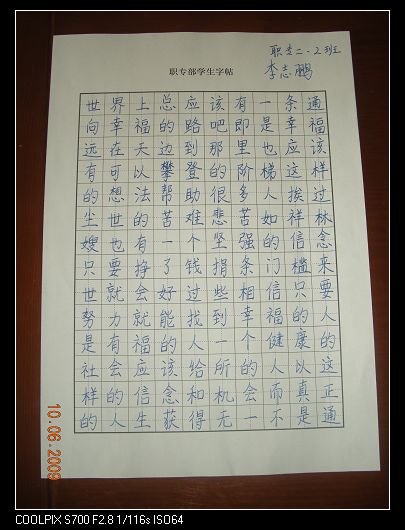 职专二·2班
李志鹏
职专部学生字帖
世界上总应该有一条通
向幸福的路吧即是幸福
远在天边到那里也应该
有可以攀登的阶梯这样
的想法帮助很多人挨过
尘世的苦难悲苦如祥林
嫂也有一个坚强的信念
只要挣了钱捐条门槛来
世就会好过些相信只要
努力就能找到幸福的人
是有福的人一个健康的
社会应该给所的人以这
样的信念和机会而真正
的人生获得无一不是通
10.06.2009
COOLPIX S700 F2.8 1/116s ISO64